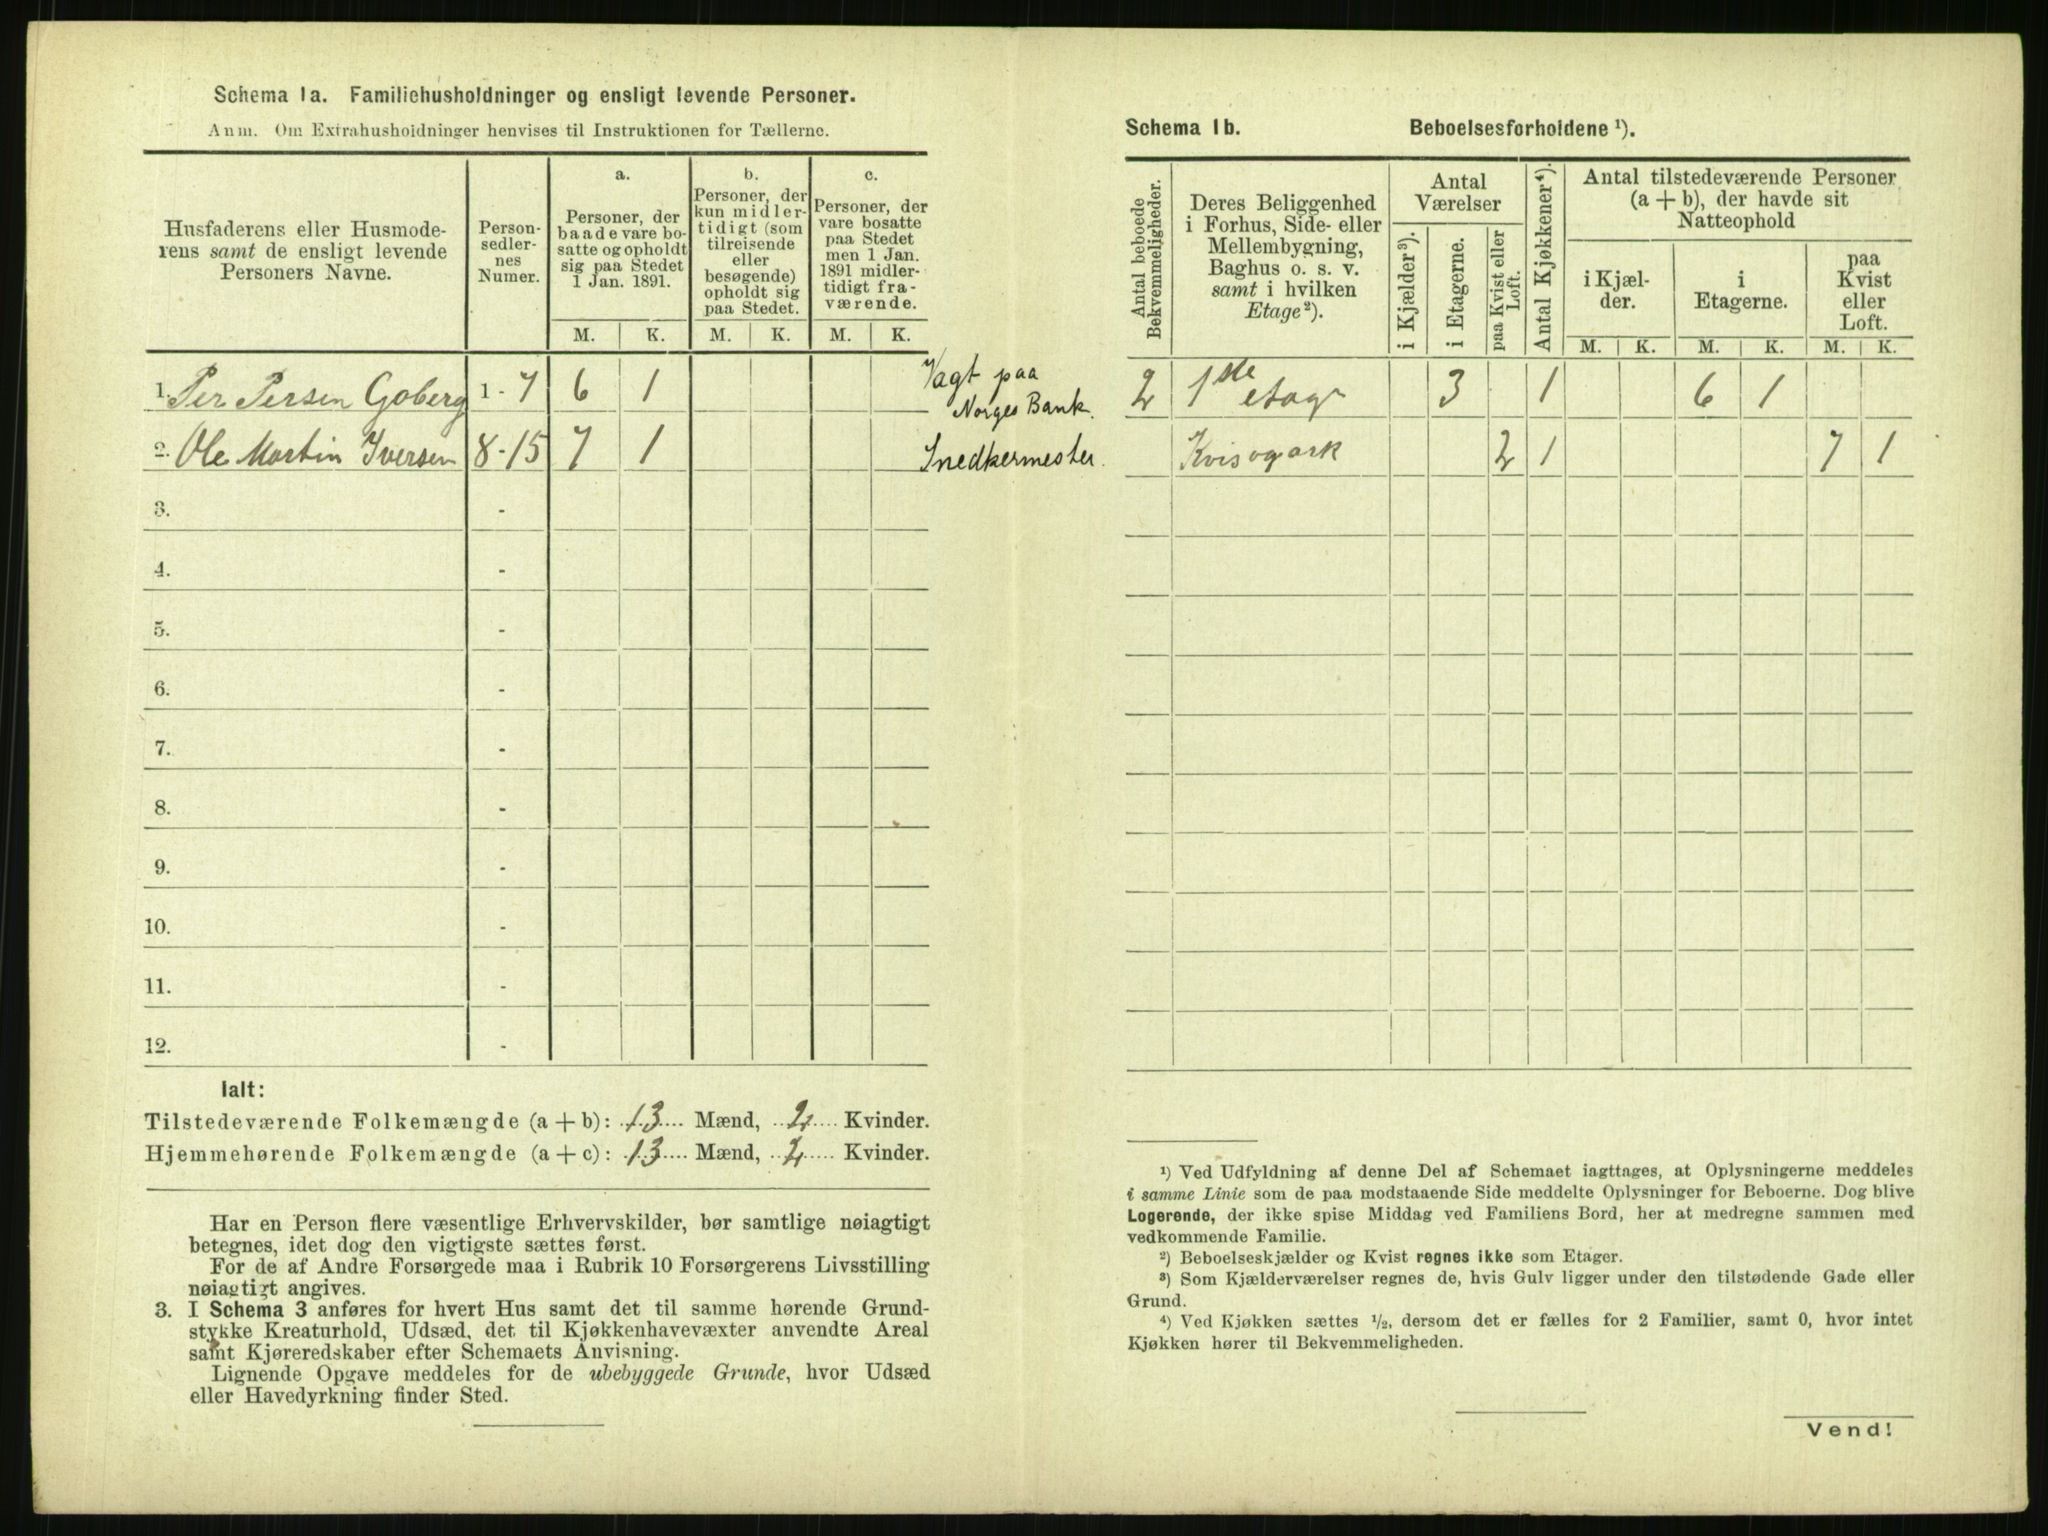 Schema 1a. Familiehusholdninger og ensligt levende Personer.
Anm. Om Extrahusholdninger henvises til Instruktionen for Tællerne.
Husfaderens eller Husmode-
rens samt de ensligt levende
Personers Navne.
Person-
sedler-
nes
Numer.
a.
Personer, der
baade vare bo-
satte og opholdt
sig paa Stedet
1 Jan. 1891.
b.
Personer, der
kun midler-
tidigt (som
tilreisende
eller
besøgende)
opholdt sig
paa Stedet.
c.
Personer, der
vare bosatte
paa Stedet
men 1 Jan.
1891 midler-
tidigt fra-
værende.
M. K. M. K. M. K.
1. Per Persen Goberg 1-7 6 1 Vagt paa
Norges Bank.
2. Ole Martin Iversen 8-15 7 1 Snedkermester.
3. -
4. -
5. -
6. -
7. -
8. -
9. -
10. -
11. -
12. -
Ialt:
Tilstedeværende Folkemængde (a + b): 13 Mænd, 2 Kvinder.
Hjemmehørende Folkemængde (a + c): 13 Mænd, 2 Kvinder.
Har en Person flere væsentlige Erhvervskilder, bør samtlige nøiagtigt
betegnes, idet dog den vigtigste sættes først.
For de af Andre Forsørgede maa i Rubrik 10 Forsørgerens Livsstilling
nøiagtigt angives.
3. I Schema 3 anføres for hvert Hus samt det til samme hørende Grund-
stykke Kreaturhold, Udsæd, det til Kjøkkenhavevæxter anvendte Areal
samt Kjøreredskaber efter Schemaets Anvisning.
Lignende Opgave meddeles for de ubebyggede Grunde, hvor Udsæd
eller Havedyrkning finder Sted.
Schema 1b. Beboelsesforholdene ¹).
Antal beboede
Bekvemmeligheder.
Deres Beliggenhed
i Forhus, Side- eller
Mellembygning,
Baghus o. s. v.
samt i hvilken
Etage ²).
Antal
Værelser
i Kjælder ³).
i Etagerne.
paa Kvist eller
Loft.
Antal Kjøkkener ⁴).
Antal tilstedeværende Personer
(a + b), der havde sit
Natteophold
i Kjæl-
der.
i
Etagerne.
paa
Kvist
eller
Loft.
M. K. M. K. M. K.
2 1ste etage 3 1 6 1
Kvisogark 2 1 7 1
¹) Ved Udfyldning af denne Del af Schemaet iagttages, at Oplysningerne meddeles
i samme Linie som de paa modstaaende Side meddelte Oplysninger for Beboerne. Dog blive
Logerende, der ikke spise Middag ved Familiens Bord, her at medregne sammen med
vedkommende Familie.
²) Beboelseskjælder og Kvist regnes ikke som Etager.
³) Som Kjælderværelser regnes de, hvis Gulv ligger under den tilstødende Gade eller
Grund.
⁴) Ved Kjøkken sættes ½, dersom det er fælles for 2 Familier, samt 0, hvor intet
Kjøkken hører til Bekvemmeligheden.
Vend!